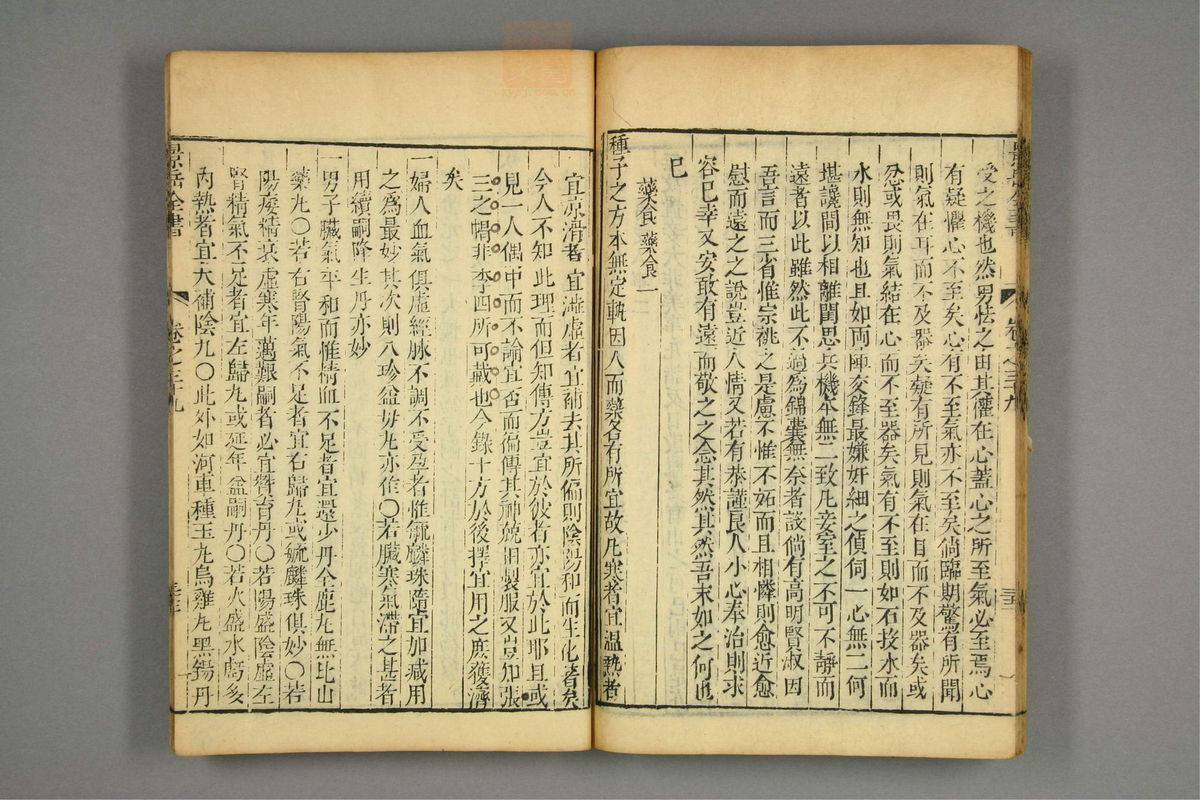 受之機也然男怯之由其懼在心蓋心之所至氣必至焉心
有疑懼心不至矣心有不至氣亦不至矣倘臨期驚有所聞
則氣在耳而不及器矣疑有所見則氣在目而不及器矣或
忿或畏則氣結在心而不至器矣氣有不至則如石投水而
水則無知也且如兩陣交鋒最嫌奸細之偵伺一心無二何
堪讒間以相離閨思兵機本無二致凡妾室之不可不靜而
遠者以此雖然此不過為錦囊無奈者設倘有高明賢淑因
吾言而三省惟宗祧之是慮不惟不妬而且相憐則愈近愈
慰而遠之之說豈近人情又若有恭謹良人小心奉治則求
容巳幸又安敢有遠而敬之之念其然其然吾末如之何也
巳
藥食 藥食一
種子之方本無定軌因人而藥各有所宜故凡寒者宜溫熱者
景岳全書 卷之三十九
宜凉滑者宜澁虛者宜補去其所偏則陰陽和而生化著矣
今人不知此理而但知傳方豈宜於彼者亦宜於此耶且或
見一人偶中而不論宜否而徧傳其神兢相製服又豈知張
三之帽非李四所可戴也今錄十方於後擇宜用之庶獲濟
矣
一婦人血氣俱虛經脉不調不受孕者惟毓麟珠隨宜加减用
之為最妙其次則八珍益母丸亦佳〇若臟寒氣滯之甚者
用續嗣降生丹亦妙
一男子臟氣平和而惟精血不足者宜還少丹全鹿丸無比山
藥丸〇若右腎陽氣不足者宜右歸丸或毓麟珠俱妙〇若
陽痿精衰虛寒年邁艱嗣者必宜贊育丹〇若陽盛陰虛左
腎精氣不足者宜左歸丸或延年益嗣丹〇若火盛水虧多
內熱者宜大補陰丸〇此外如河車種玉丸烏雞丸黑錫丹
景岳全書 卷之三十九